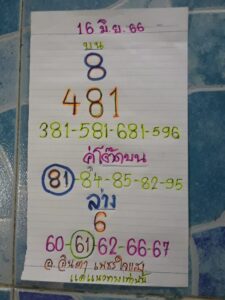 16 มิ.ย. 66
บน
8
481
381-581-681-596
คู่โต๊ดบน
81-84-85-82-95
ล่าง
6
60-61-62-66-67
อ. จินดา เพชรใจแสง
แค่แนวทางเท่านั้น